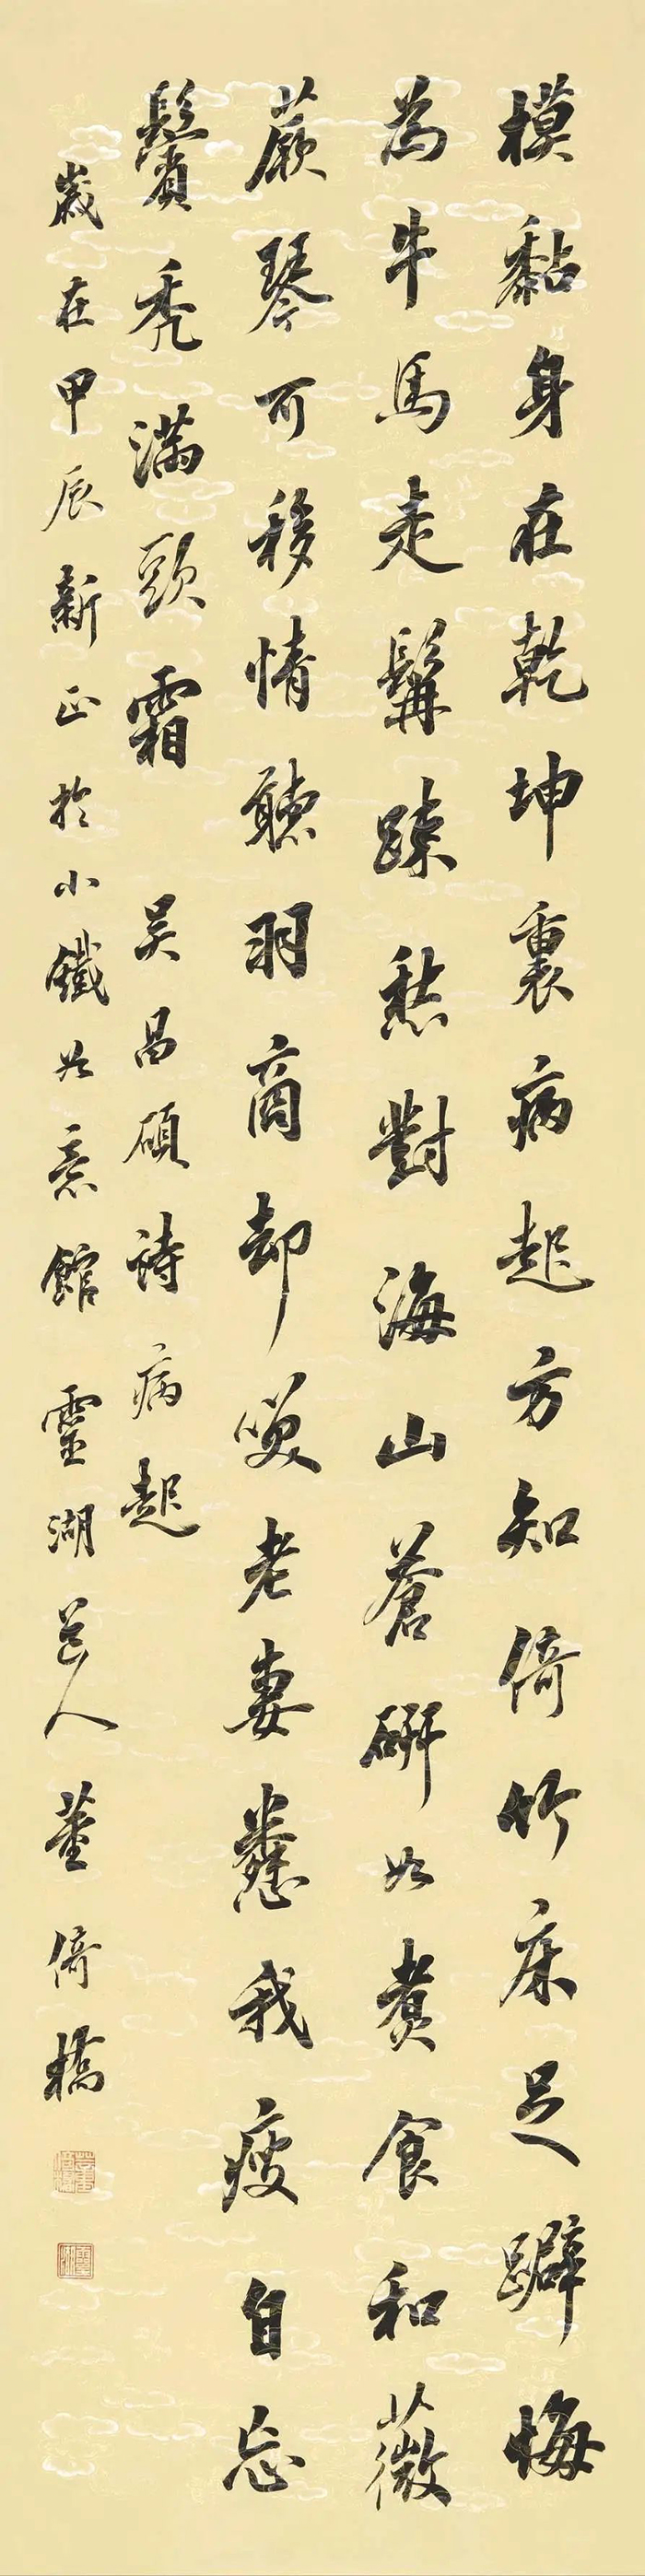 模黏身在乾坤裏病起方知倚竹床足躃悔
為牛馬走髯疎愁對海山蒼研如煮食和薇
蕨琴可移情聽羽商却咲老妻我瘦自忘
鬢禿滿頭霜 吳昌碩詩病起
歲在甲辰新正於小鐵如意館 靈湖道人董倚橋